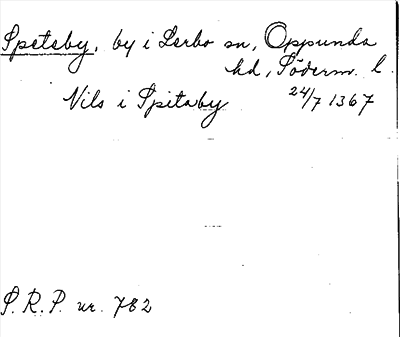 Spetsby, by i Lerbo sn, Oppunda
hd, Söderm. l.
Nils i Spitaby 24/7 1367
S.R.P. nr. 782